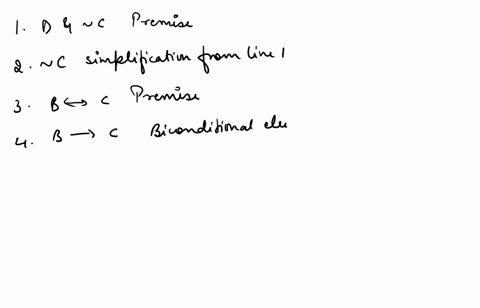 1. D & ~C Premise
2. ~C simplification from line 1
3. B ↔ C Premise
4. B → C Biconditional ele